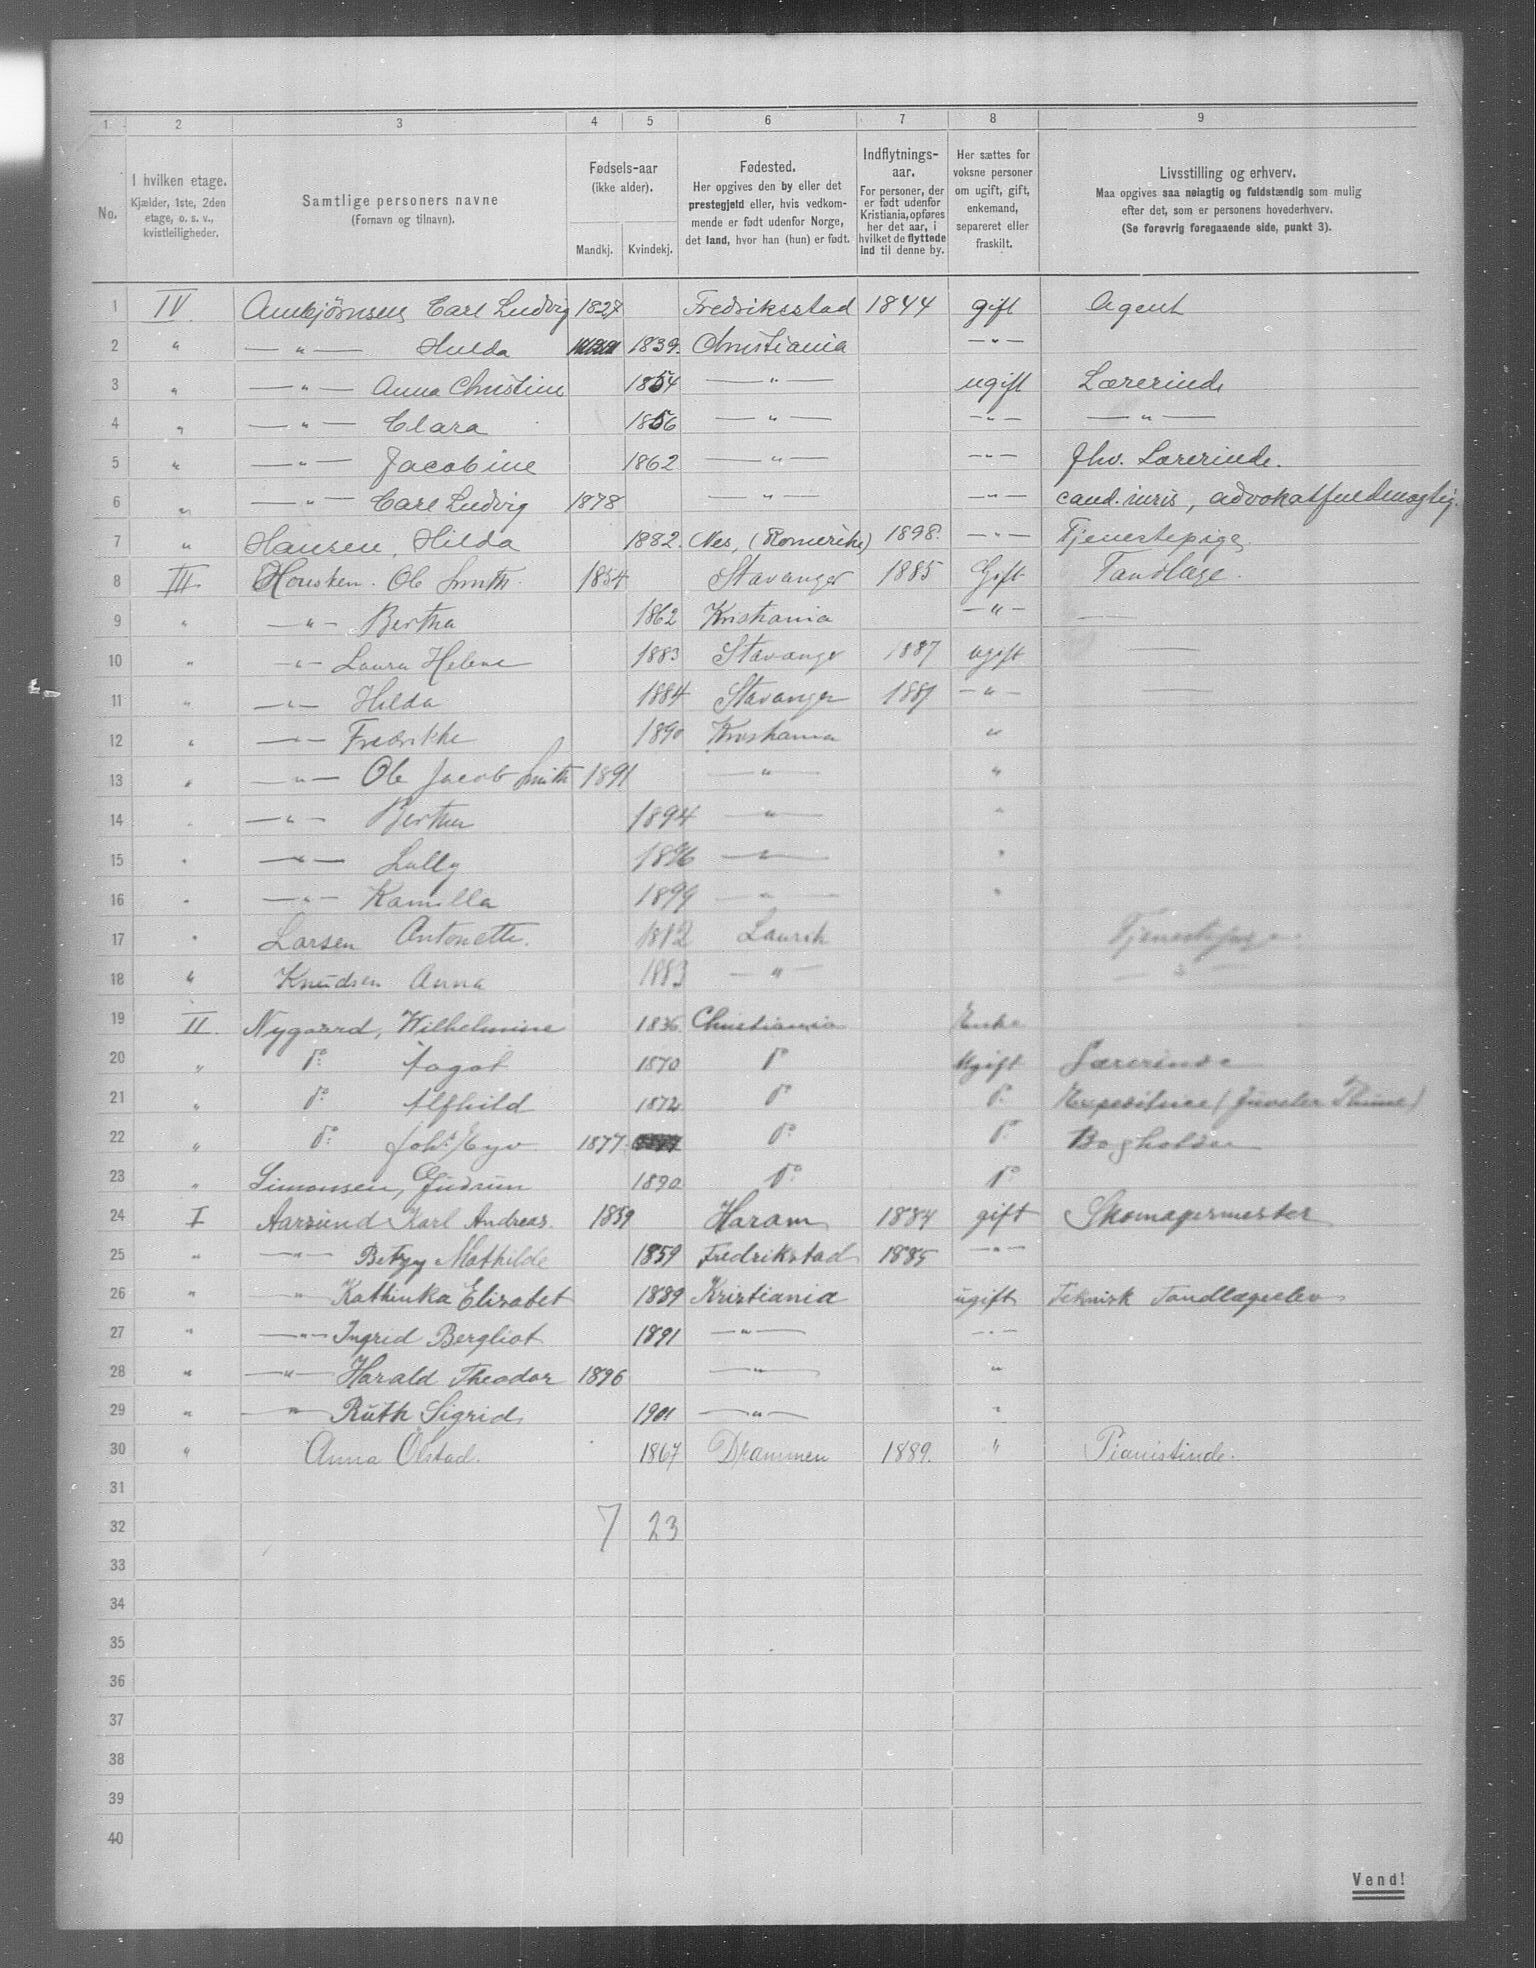 1 2 3 4 5 6 7 8 9
No.
I hvilken etage.
Kjælder, 1ste, 2den
etage, o. s. v.,
kvistleiligheder.
Samtlige personers navne
(Fornavn og tilnavn).
Fødsels-aar
(ikke alder).
Mandkj. Kvindekj.
Fødested.
Her opgives den by eller det
prestegjeld eller, hvis vedkom-
mende er født udenfor Norge,
det land, hvor han (hun) er født.
Indflytnings-
aar.
For personer, der
er født udenfor
Kristiania, opføres
her det aar, i
hvilket de flyttede
ind til denne by.
Her sættes for
voksne personer
om ugift, gift,
enkemand,
separeret eller
fraskilt.
Livsstilling og erhverv.
Maa opgives saa nøiagtig og fuldstændig som mulig
efter det, som er personens hovederhverv.
(Se forøvrig foregaaende side, punkt 3).
1 IV Carl Ludvig 1827 Fredriksstad 1844 gift Agent
2 " — " — Hulda 1839. Christiania — " —
3 " — " — Anna Christine 1854 — " — ugift Lærerinde
4 " — " — Clara 1856 — " — — " — — " —
5 " — " — Jacobine 1862 — " — — " — Fhv. Lærerinde.
6 " — " — Carl Ludvig 1878 — " — — " — cand. iuris, advokatfuldmægtig.
7 " Hansen, Hilda 1882. Nes, (Romerike) 1898. — " — Tjenestepige
8 III. Housken. Ole Smith. 1854 Stavanger 1885 Gift Tandlæge.
9 " — " — Bertha 1862 Kristiania — " —
10 " — " — Laura Helene 1883 Stavanger 1887 ugift —
11 " — " — Hilda 1884 Stavanger 1887 — " — —
12 " — " — Fredrikke 1890 Kristiania "
13 " — " — Ole Jacob Smith 1891 — " — "
14 " — " — Bertha 1894 — " — "
15 " — " — Lally 1896 — " — "
16 " — " — Kamilla 1899 — " — "
17 " Larsen Antonette. Laurvik Tjenestepige
18 " Knudsen Anna 1883 — " — " —
19 II. Nygaard, Wilhelmine 1836 Christiania Enke
20 " do Aagot 1870 do Ugift Lærerinde
21 " do Alfhild 1872 do do Expeditrice (Juveler Thune)
22 " do Johs. Eyv. 1877. do do Bogholder
23 " Simonsen, Gudrun 1890 do do
24 I Aarsund Karl Andreas. 1859 Haram 1884 gift Skomagermester
25 " — " — Betzy Mathilde 1859 Fredrikstad 1885 — " —
26 " — " — Kathinka Elisabet 1889 Kristiania ugift Teknisk Tandlægeelev
27 " — " — Ingrid Bergliot 1891 — " — — " —
28 " — " — Harald Theodor 1896 — " — "
29 " — " — Ruth Sigrid 1901 — " — "
30 " Anna Ölstad. 1867 Drammen 1889. " Pianistinde.
31
32 7 23
33
34
35
36
37
38
39
40
Vend!